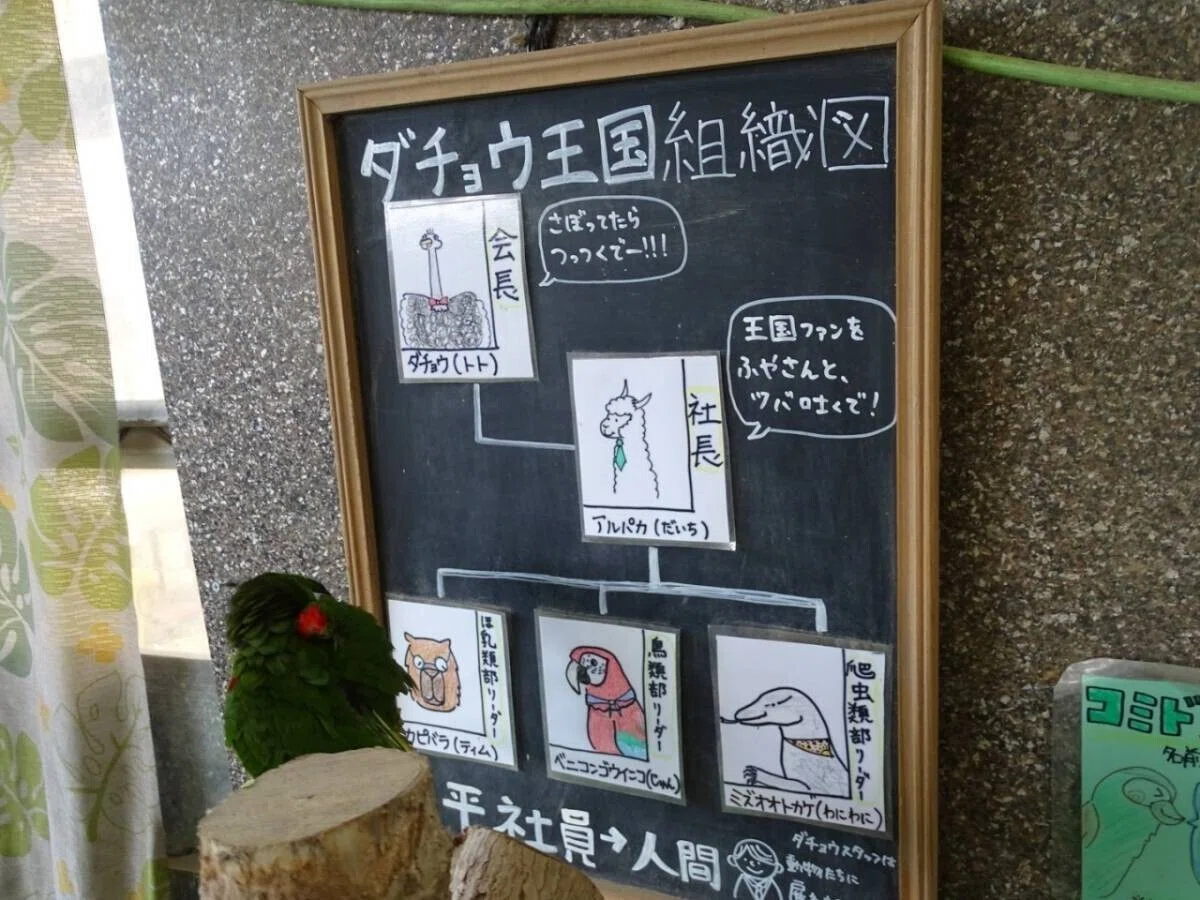 ダチョウ王国組織図
会長
ダチョウ(トト)
さぼってたら
つっつくでー!!!
社長
アルパカ(だいち)
王国ファンを
ふやさんと、
ツバ吐くで!
ほ乳類部リーダー
カピバラ(ティム)
鳥類部リーダー
ベニコンゴウインコ(じゃん)
爬虫類部リーダー
ミズオオトカゲ(わにわに)
平社員→人間
ダチョウスタッフは
動物たちに
コミド
名前